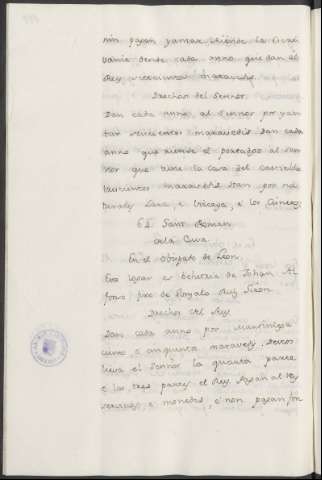 nin pagan yantar
dende cada anno que dan al
Rey maravedis
Derechos del Sennor
Dan cada anno al Sennor por yan
tar maravedis Dan cada
anno que al sen
nor que tiene la casa del
maravedis Dan por
Lara, e Vizcaya, e los
61 Sant Roman
dela Cuva
En el Obispado de Leon
Este logar es behetria de Johan Al
fonso fixo de Gonzalo Ruiz Giron
Derechos del Rey
Dan cada anno por martiniega
ciento e cinquenta maravedis, destos
lieva el Sennor la quarta parte
e las tres partes el Rey. Pagan al Rey
servicios, e monedas, e non pagan fon